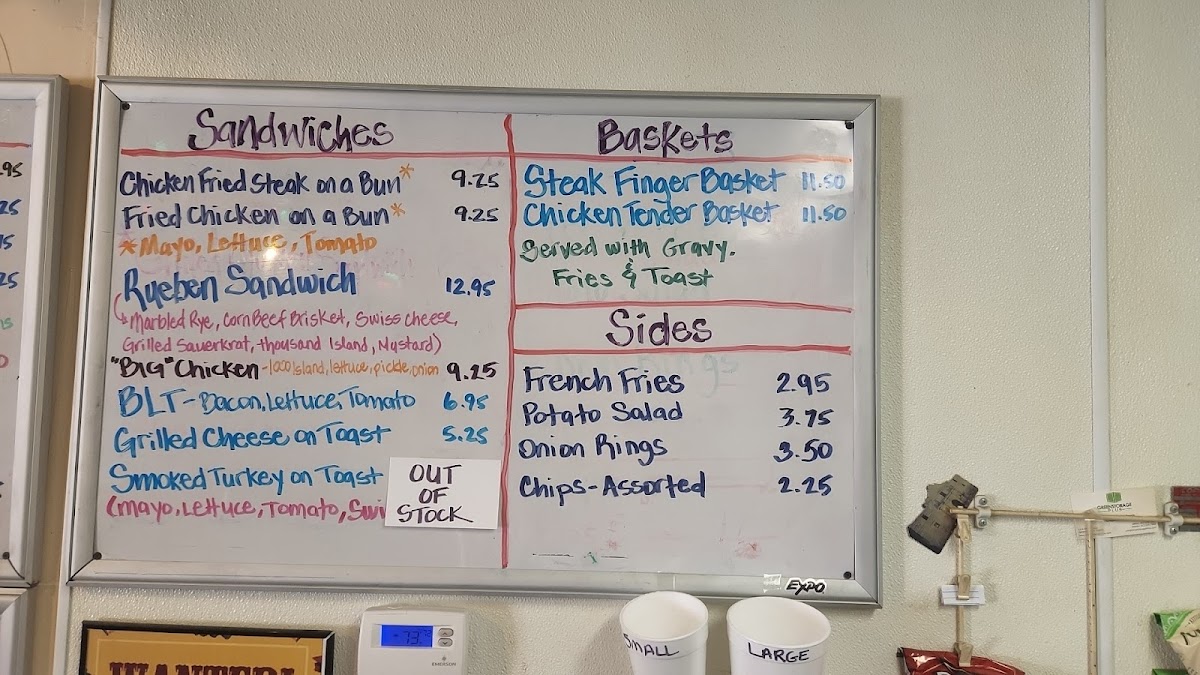 Sandwiches
Chicken Fried Steak on a Bun* 9.25
Fried Chicken on a Bun* 9.25
*Mayo, Lettuce, Tomato
Rueben Sandwich 12.95
Marbled Rye, Corn Beef Brisket, Swiss cheese,
Grilled Sauerkrat, thousand Island, Mustard)
"BIG" Chicken - 1000 Island, lettuce, pickle, onion 9.25
BLT - Bacon, Lettuce, Tomato 6.95
Grilled Cheese on Toast 5.25
Smoked Turkey on Toast
(mayo, Lettuce, Tomato, Swi
OUT
OF
STOCK
Baskets
Steak Finger Basket 11.50
Chicken Tender Basket 11.50
Served with Gravy.
Fries & Toast
Sides
French Fries 2.95
Potato Salad 3.75
Onion Rings 3.50
Chips-Assorted 2.25
EXPO
.95
25
25
WANTED!
73
EMERSON
SMALL
LARGE